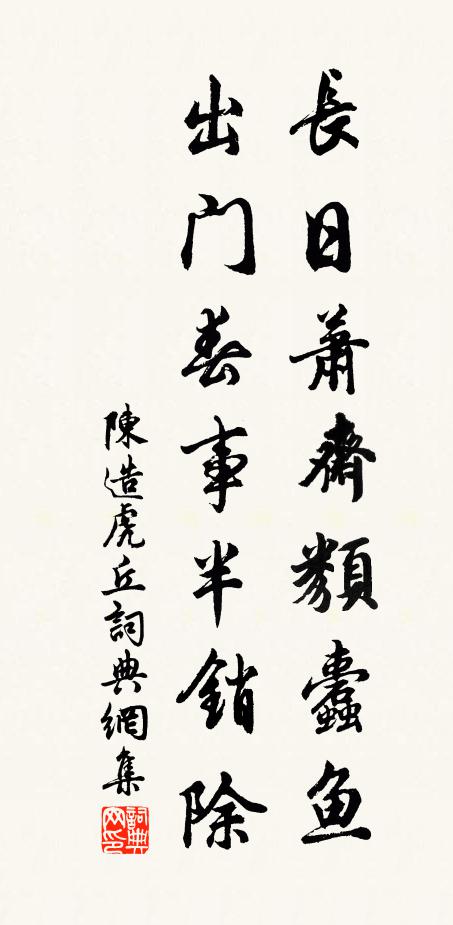 長日蕭齋類蠹魚
出門春事半銷除
陳造虎丘詞典網集
詞典网印